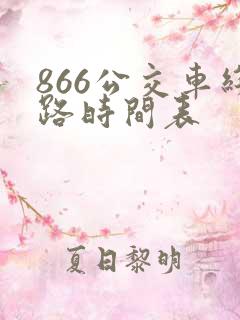 866公交車綫
路時間表
夏日黎明